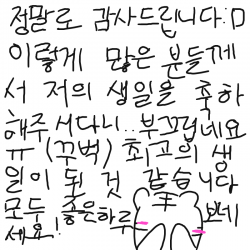 정말로 감사드립니다:D
이렇게 많은 분들께
서 저의 생일을 축하
해주시다니..부끄럽네요
ㅠ (꾸벅) 최고의 생
일이 된 것 같습니다
모두 좋은하루 보내
세요!